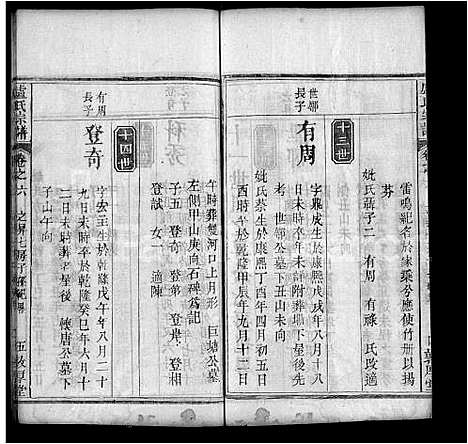 雷鳴紀名於家乘分應使竹册以揚
芬
妣氏蔣子二 有周 有祿 氏改適
十三世
世鄉長子 有周
字殿成生於康熙戊戌年八月十八
日未時卒年未詳附葬塌下星後先
考 世鄉公墓下丑山未向
妣氏蔡生於康熙丁酉年四月初五日
酉時卒於乾隆甲辰年九月十二日
午時葬雙河口上月形 巨塘公墓
左側甲山庚向石碑為記
子五 登奇 登第 登彪 登相
登試 女一 適陳
十四世
有周長子 登奇
字宏 生於乾隆戊午年八月二十
九日未時卒於乾隆癸巳年六月十
二日未時葬 星後 唐公墓下
子山午向
盧氏宗譜
卷之六
五 敘厚堂